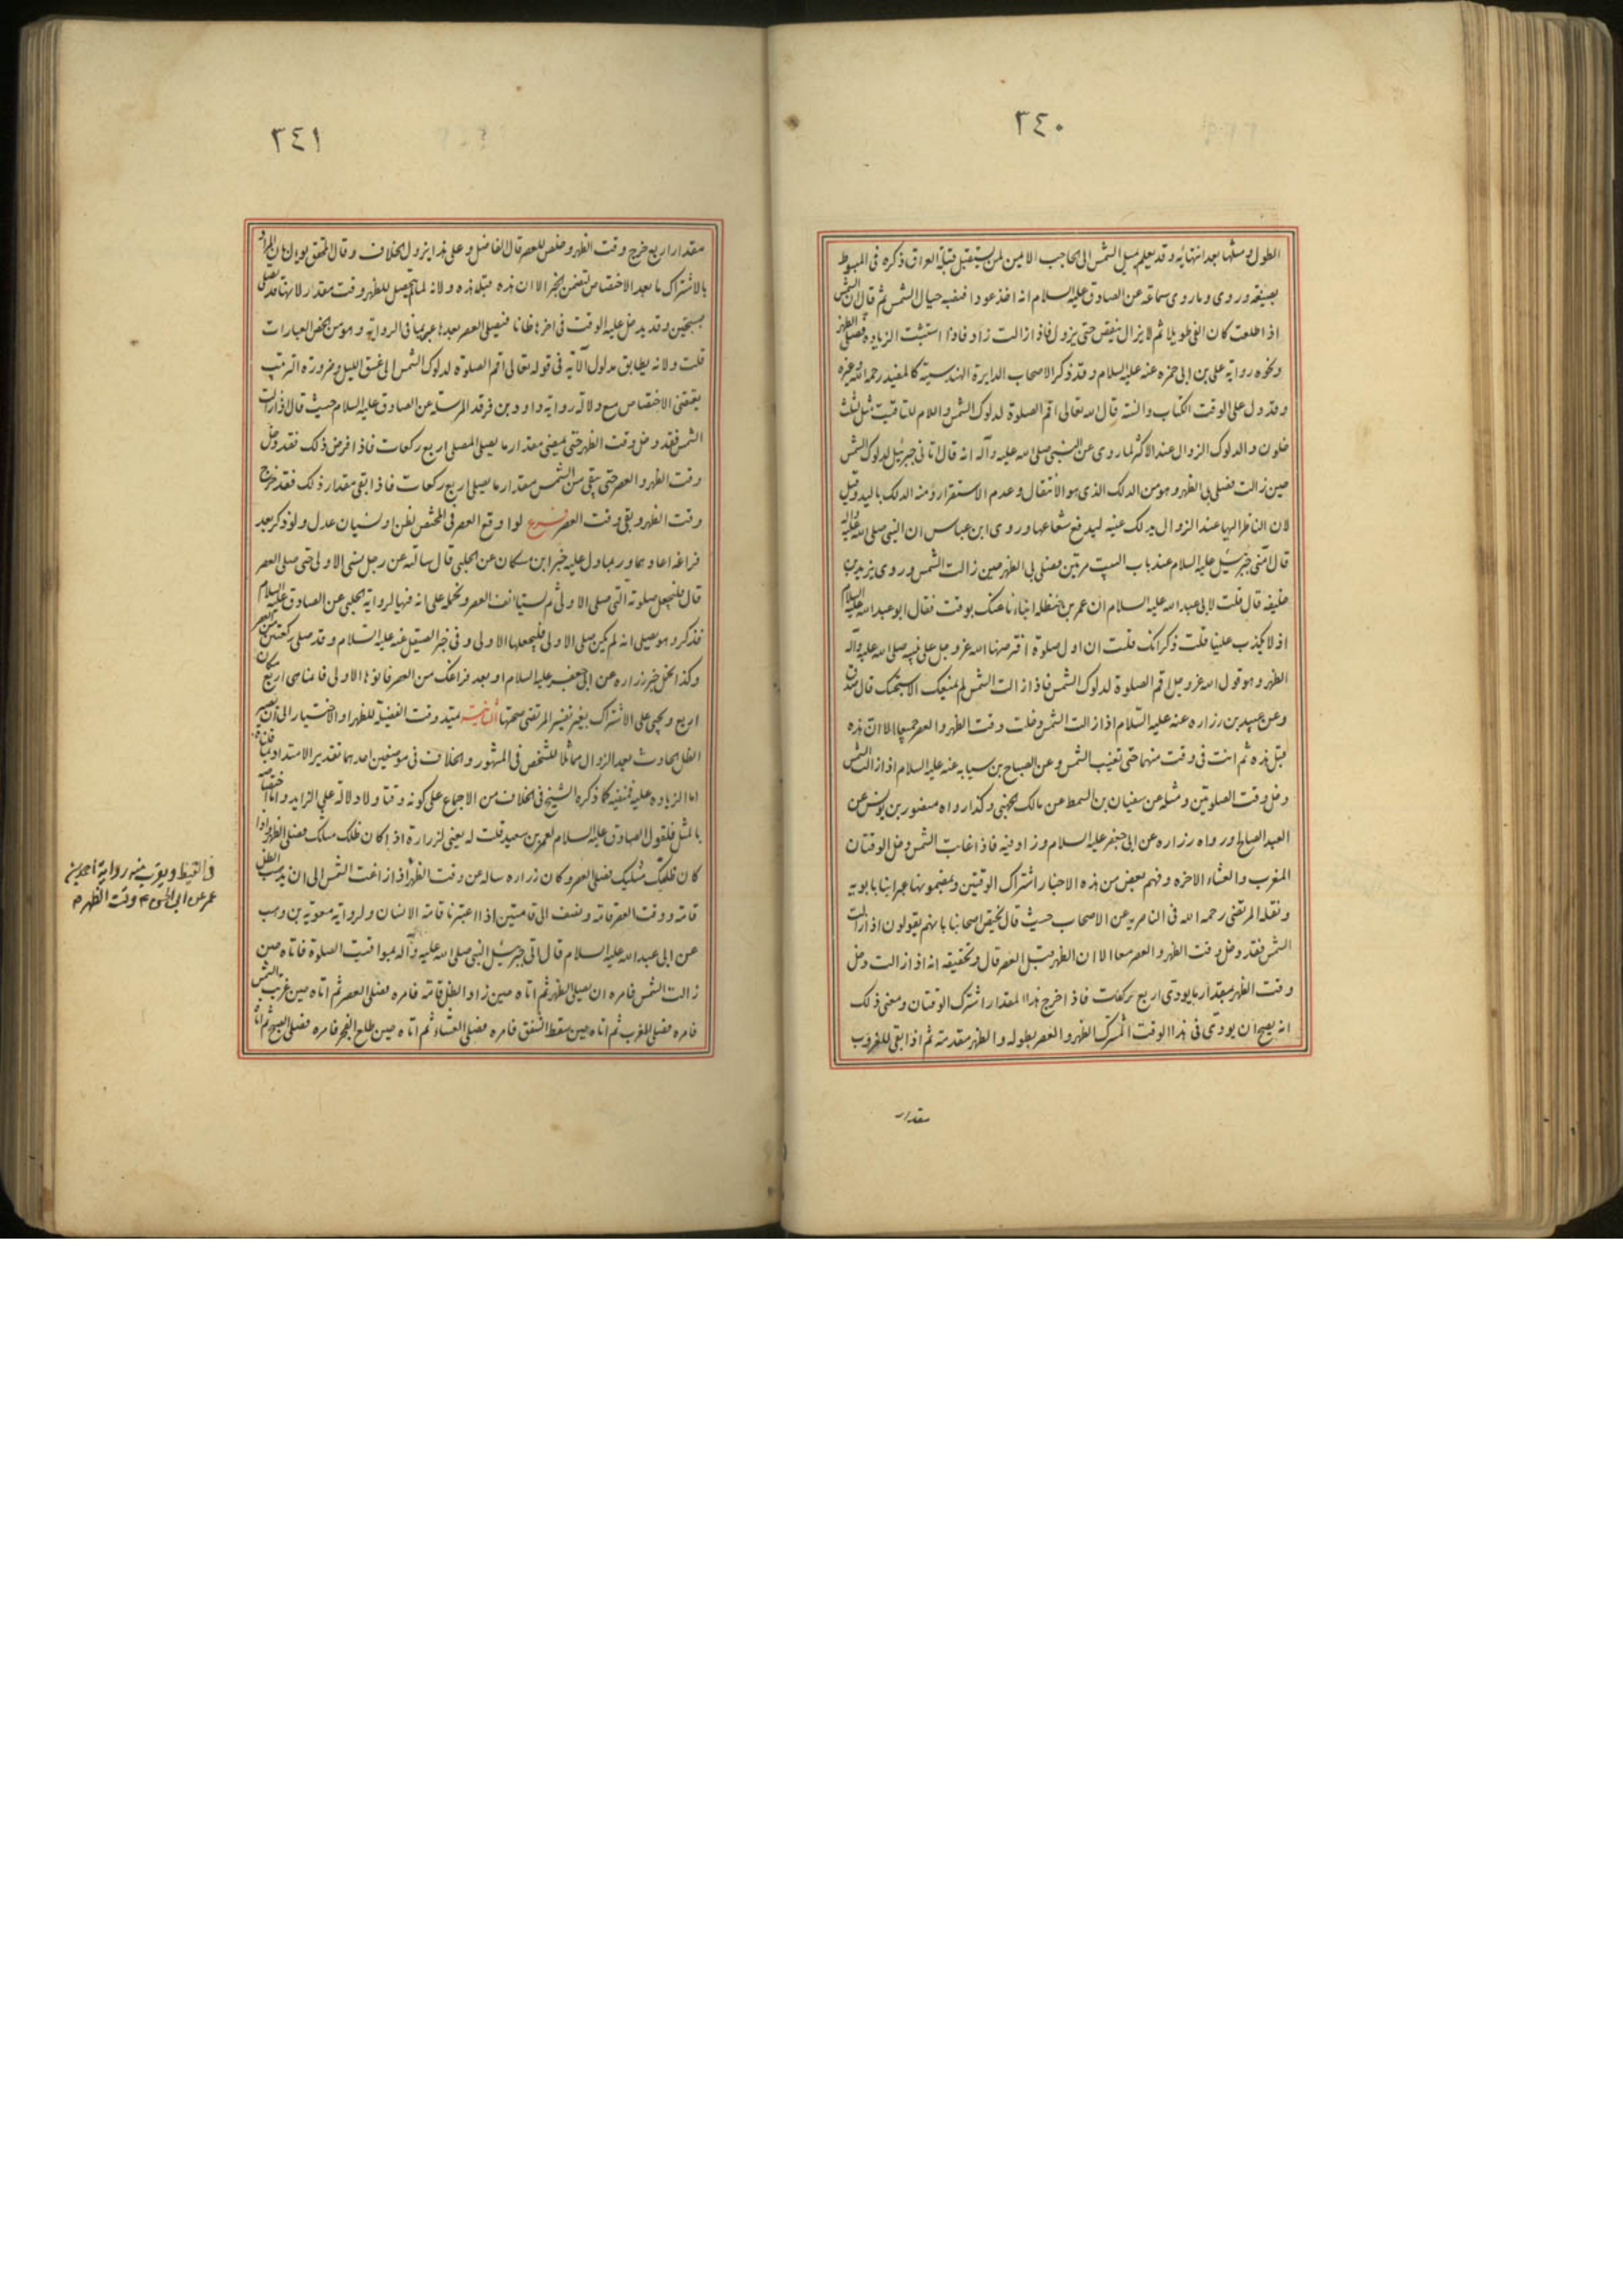 ٣٤٠
الطول ومثلها بعد انتهائه وقد يعلم بميل الشمس الى الحاجب الايمن لمن يستقبل قبلة العراق ذكره فى المبسوط
بصيغة وروى وما روى سماعة عن الصادق عليه السلام انه اخذ عودا فنصبه حيال الشمس ثم قال ان الشمس
اذا طلعت كان الفى طويلا ثم لا يزال ينقص حتى يزول فاذا زالت زاد فاذا استبنت الزيادة فصلى الظهر
ونحوه رواية على بن ابى حمزه عنه عليه السلام وقد ذكر الاصحاب الدايرة الهندسية كالمفيد رحمه الله وغيره
وقد دل على الوقت الكتاب والسنة قال الله تعالى اقم الصلوة لدلوك الشمس واللام للتاقيت مثل لثلث
خلون والدلوك الزوال عند الاكثر لما روى عن النبى صلى الله عليه وآله انه قال اتانى جبرئيل لدلوك الشمس
حين زالت فصلى بى الظهر وهو من الدلك الذى هو الانتقال وعدم الاستقرار ومنه الدلك باليد وقيل
لان الناظر اليها عند الزوال يدلك عينه ليدفع شعاعها وروى ابن عباس ان النبى صلى الله عليه وآله
قال امنى جبرئيل عليه السلام عند باب البيت مرتين فصلى بى الظهر حين زالت الشمس وروى يزيد بن
خليفه قال قلت لابى عبد الله عليه السلام ان عمر بن حنظله اتانا عنك بوقت فقال ابو عبد الله عليه السلام
اذ لا يكذب علينا قلت ذكر انك قلت ان اول صلوة افترضها الله عز وجل على نبيه صلى الله عليه وآله
الظهر وهو قول الله عز وجل اقم الصلوة لدلوك الشمس فاذا زالت الشمس لم يمنعك الا سبحتك قال صدق
وعن عبيد بن زراره عنه عليه السلام اذا زالت الشمس دخلت وقت الظهر والعصر جميعا الا ان هذه
قبل هذه ثم انت فى وقت منهما حتى تغيب الشمس وعن الصباح بن سيابه عنه عليه السلام اذا زالت الشمس
دخل وقت الصلوتين ومثله عن سفيان بن السمط عن مالك الجهنى وكذا رواه منصور بن يونس عن
العبد الصالح ورواه زراره عن ابى جعفر عليه السلام وزاد فيه فاذا غابت الشمس دخل الوقتان
المغرب والعشاء الاخره وفهم بعض من هذه الاخبار اشتراك الوقتين وبمضمونها عبر ابنا بابويه
ونقله المرتضى رحمه الله فى الناصرية عن الاصحاب حيث قال يختص اصحابنا بانهم يقولون اذا زالت
الشمس فقد دخل وقت الظهر والعصر معا الا ان الظهر قبل العصر قال وتحقيقه انه اذا زالت دخل
وقت الظهر بمقدار ما يودى اربع ركعات فاذا خرج هذا المقدار اشترك الوقتان ومعنى ذلك
انه يصح ان يودى فى هذا الوقت المشترك الظهر والعصر بطوله والظهر مقدمة ثم اذا بقى للغروب
مقدار
٣٤١
مقدار اربع خرج وقت الظهر وخلص للعصر قال الفاضل وعلى هذا يزول الخلاف وقال المحقق
بالاشتراك ما بعد الاختصاص لتضمن الخبر الا ان هذه قبل هذه ولانه لما لم يتحصل للظهر وقت مقدار لانها قد تصلى
بتسبيحتين وقد يدخل عليه الوقت فى اخرها ظانا فيصلى العصر بعدها عبر بما فى الرواية وهو من الخص العبارات
قلت ولانه يطابق مدلول الآية فى قوله تعالى اقم الصلوة لدلوك الشمس الى غسق الليل وضرورة الترتيب
يقتضى الاختصاص مع دلالة رواية داود بن فرقد المرسلة عن الصادق عليه السلام حيث قال اذا زالت
الشمس فقد دخل وقت الظهر حتى يمضى مقدار ما يصلى المصلى اربع ركعات فاذا مضى ذلك فقد دخل
وقت الظهر والعصر حتى يبقى من الشمس مقدار ما يصلى اربع ركعات فاذا بقى مقدار ذلك فقد خرج
وقت الظهر وبقى وقت العصر فرع لو اوقع العصر فى المختص لظن او نسيان عدل ولو ذكر بعد
فراغه اعادهما وربما دل عليه خبر ابن مسكان عن الحلبى قال سالته عن رجل نسى الاولى حتى صلى العصر
قال فليجعل صلوته التى صلى الاولى ثم ليستانف العصر ونحمله على انه فيها لرواية الحلبى عن الصادق عليه السلام
فذكر وهو يصلى انه لم يكن صلى الاولى فليجعلها الاولى وفى خبر الصيقل عنه عليه السلام وقد صلى ركعتين من العصر
وكذا يحمل خبر زراره عن ابى جعفر عليه السلام او بعد فراغك من العصر فانوها الاولى فانما هى اربع مكان
اربع ويجئ على الاشتراك بغير تفسير المرتضى صحتها الثانية يمتد وقت الفضيلة للظهر او الاختيار الى ان يصير
الظل الحادث بعد الزوال مماثلا للشخص فى المشهور والخلاف فى موضعين احدهما تقدير الامتداد
اما الزياده عليه فمنفيه كما ذكره الشيخ فى الخلاف من الاجماع على كونه وقتا ولا دلالة على الزايد واما
بالمثل فلقول الصادق عليه السلام لعمر بن سعيد قلت له يعنى لزرارة اذا كان ظلك مثلك فصلى الظهر واذا
كان ظلك مثليك فصلى العصر وكان زراره ساله عن وقت الظهر اذا زاغت الشمس الى ان يذهب الظل
قامة ووقت العصر قامة ونصف الى قامتين اذا اعتبرنا قامة الانسان ولرواية معوية بن وهب
عن ابى عبد الله عليه السلام قال اتى جبرئيل النبى صلى الله عليه وآله بمواقيت الصلوة فاتاه حين
زالت الشمس فامره ان يصلى الظهر ثم اتاه حين زاد الظل قامة فامره فصلى العصر ثم اتاه حين غربت الشمس
فامره فصلى المغرب ثم اتاه حين سقط الشفق فامره فصلى العشاء ثم اتاه حين طلع الفجر فامره فصلى الصبح ثم اتاه
فى القيظ ويقرب منه رواية احمد بن
عمر عن ابى الحسن ٤ وقت الظهر